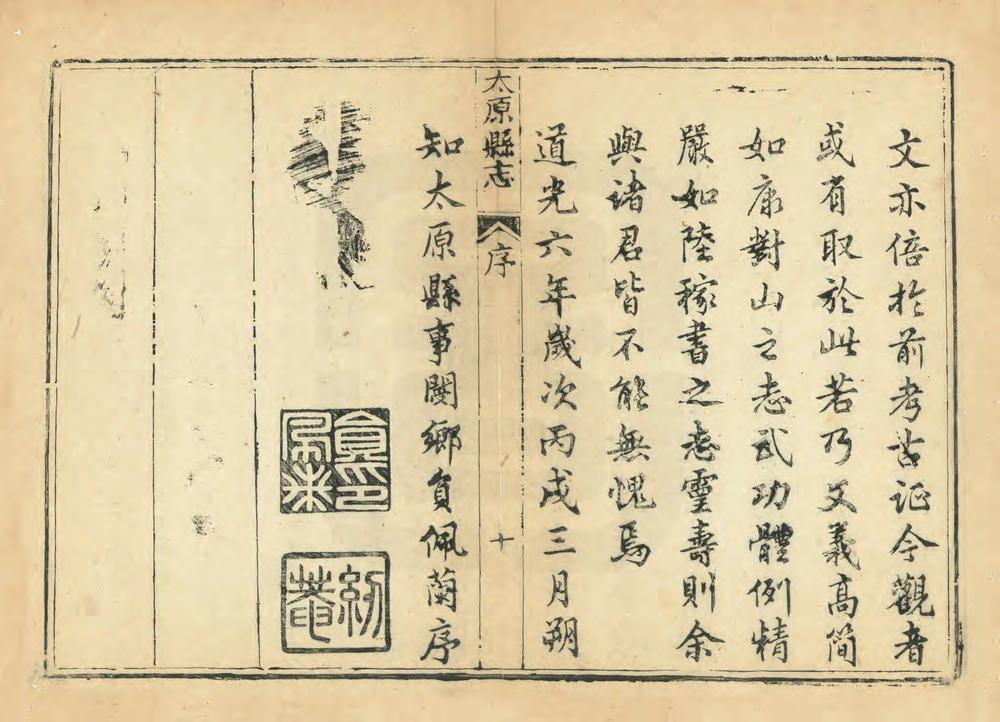 文亦倍於前考古証今觀者
或有取於此若乃文義高簡
如康對山之志武功體例精
嚴如陸稼書之志靈壽則余
與諸君皆不能無愧焉
道光六年歲次丙戌三月朔
太原縣志
序
十
知太原縣事閿鄉員佩蘭序